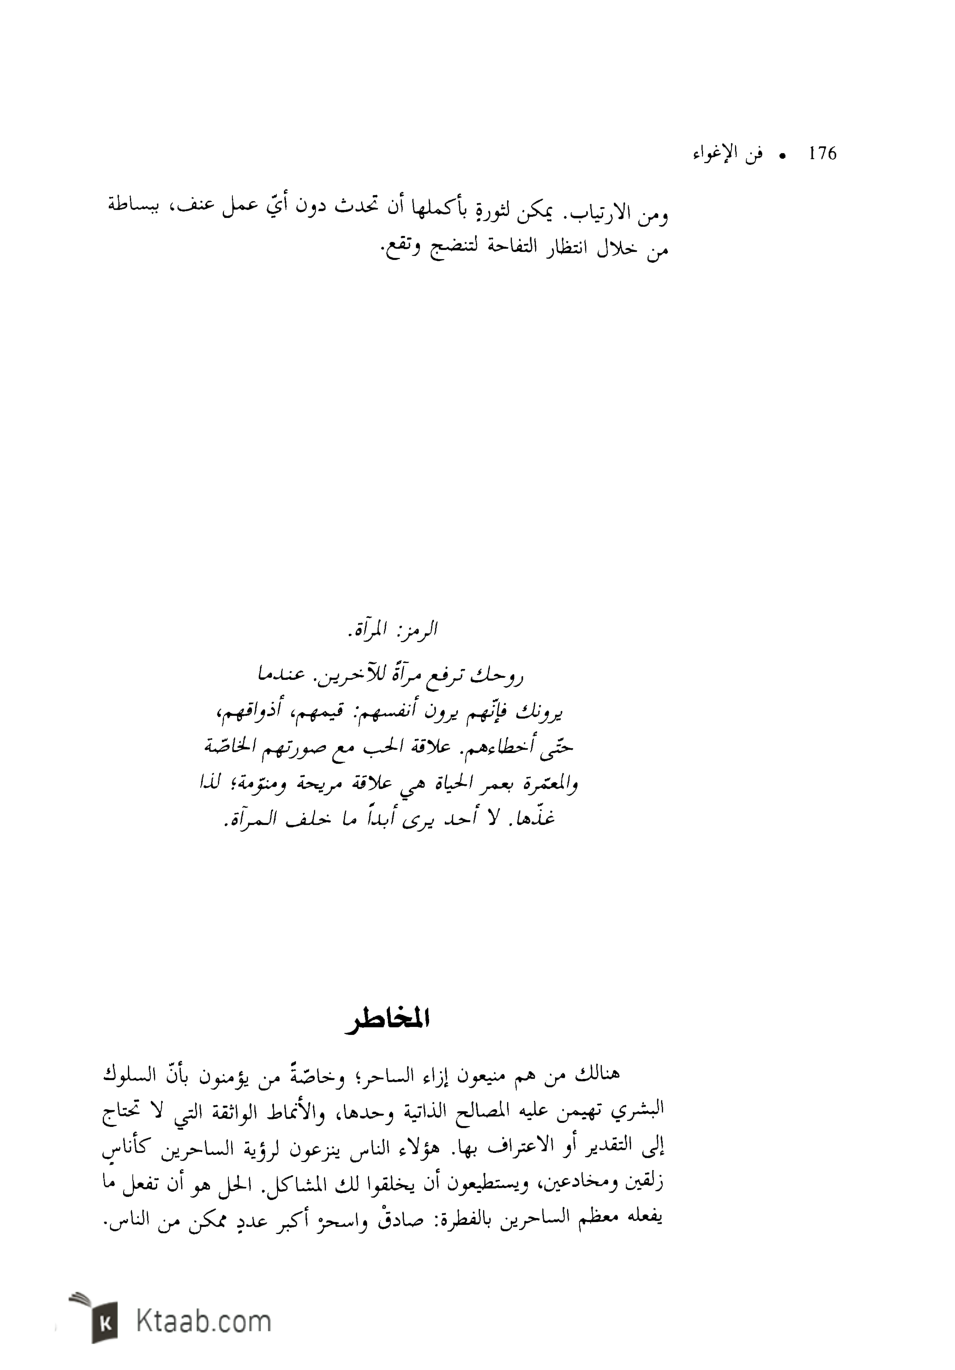 176 • فن الإغواء
ومن الارتياب. يمكن لثورةٍ بأكملها أن تحدث دون أيّ عمل عنف، ببساطة
من خلال انتظار التفاحة لتنضج وتقع.
الرمز: المرآة.
روحك ترفع مرآةً للآخرين. عندما
يرونك فإنّهم يرون أنفسهم: قيمهم، أذواقهم،
حتّى أخطاءهم. علاقة الحب مع صورتهم الخاصّة
والمعمّرة بعمر الحياة هي علاقة مريحة ومنوّمة؛ لذا
غذّها. لا أحد يرى أبداً ما خلف المرآة.
المخاطر
هنالك من هم منيعون إزاء الساحر؛ وخاصّةً من يؤمنون بأنّ السلوك
البشري تهيمن عليه المصالح الذاتية وحدها، والأنماط الواثقة التي لا تحتاج
إلى التقدير أو الاعتراف بها. هؤلاء الناس ينزعون لرؤية الساحرين كأناسٍ
زلقين ومخادعين، ويستطيعون أن يخلقوا لك المشاكل. الحل هو أن تفعل ما
يفعله معظم الساحرين بالفطرة: صادقْ واسحرْ أكبر عددٍ ممكن من الناس.
K Ktaab.com